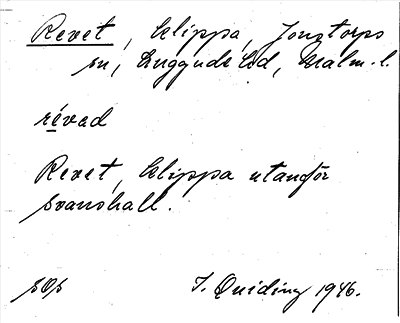 Revet, klippa, Jonstorps
sn, Luggude hd, Malm. l.
révad
Revet, klippa utanför
Svanshall.
sOs J. Quiding 1946.